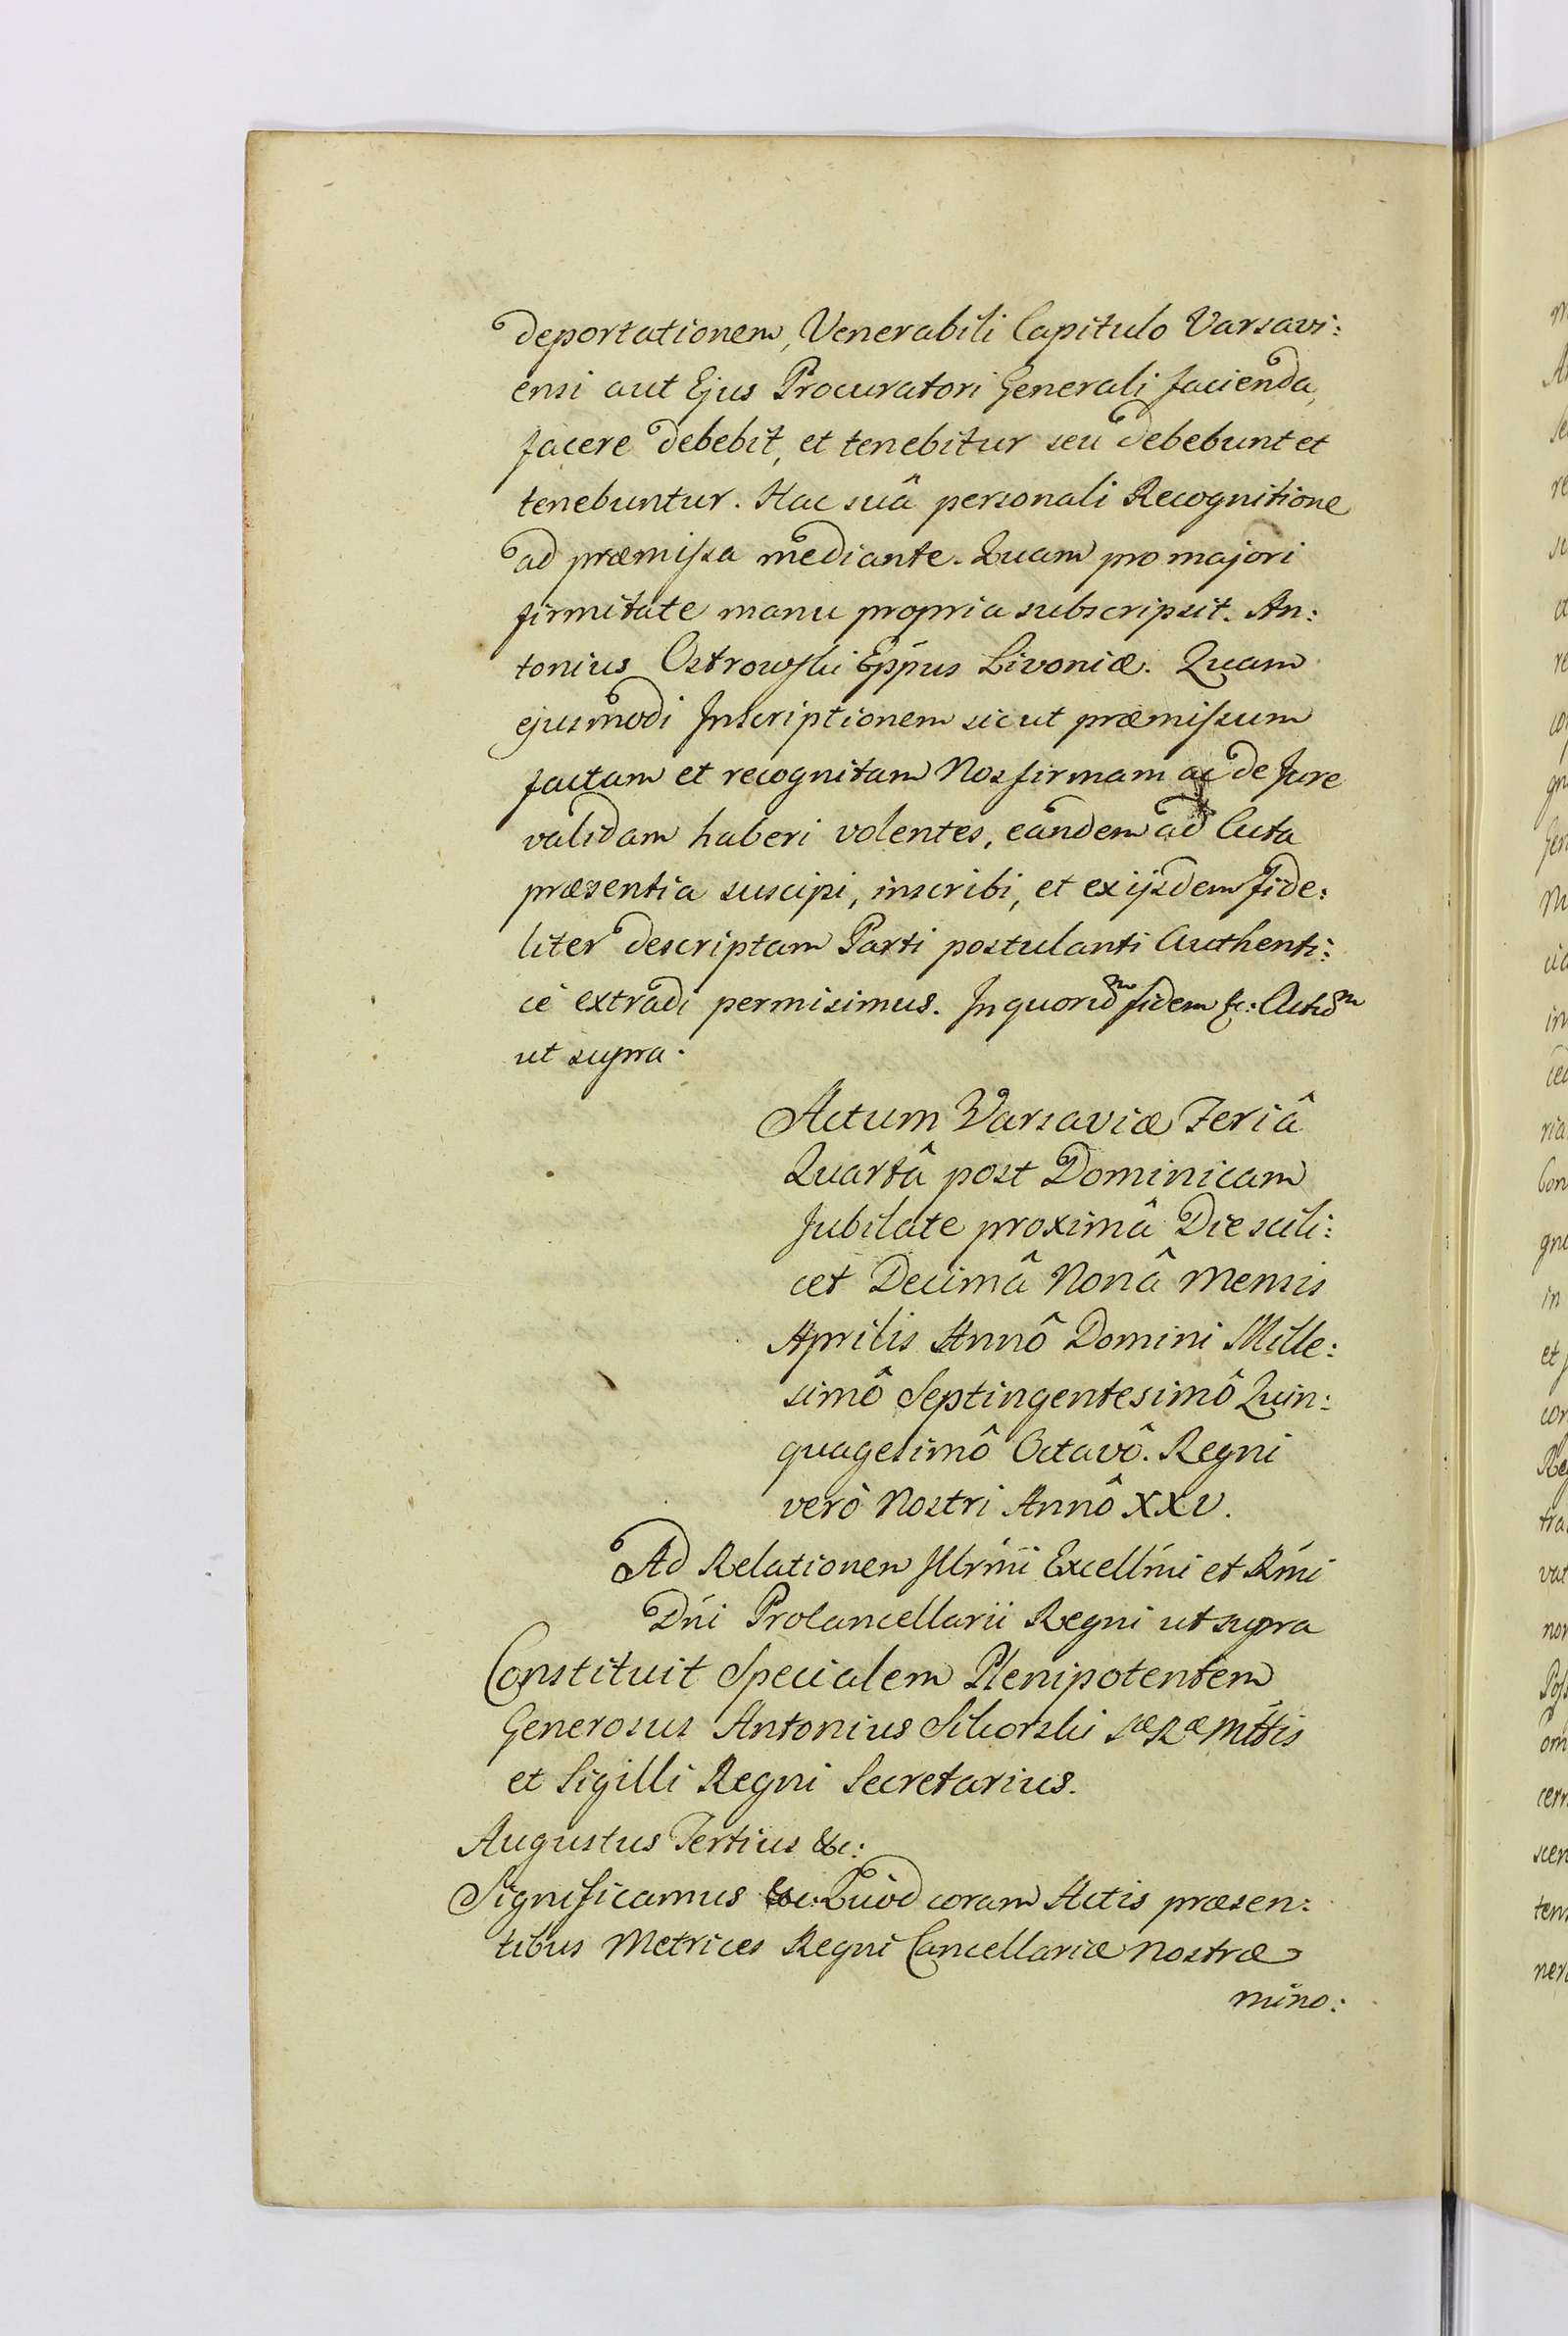 deportationem, Venerabili Capitulo Varsavi:
ensi aut Ejus Procuratori Generali facienda,
facere debebit, et tenebitur seu debebunt et
tenebuntur. Hac suâ personali Recognitione
ad præmissa mediante. Quam pro majori
firmitate manu propria subscripsit. An:
tonius Ostrowski Eppus Livoniæ. Quam
ejusmodi Inscriptionem sicut præmissum
factam et recognitam Nos firmam ac de Jure
validam haberi volentes, eandem ad Acta
præsentia suscipi, inscribi, et ex ijsdem fide:
liter descriptam Parti postulanti Authenti:
cè extradi permisimus. In quorũ fidem &c: Actũ
ut supra.
Actum Varsaviæ Feriâ
Quartâ post Dominicam
Jubilate proximâ Die scili:
cet Decimâ Nonâ Mensis
Aprilis Annô Domini Mille:
simô Septingentesimô Quin:
quagesimô Octavô. Regni
verò Nostri Annô XXV.
Ad Relationem Illrmi Excellmi et Rmi
Dni Procancellarii Regni ut supra
Constituit Specialem Plenipotentem
Generosus Antonius Sikorski SæRæMttis
et Sigilli Regni Secretarius.
Augustus Tertius &c:
Significamus &c: Quod coram Actis præsen:
tibus Metrices Regni Cancellariæ Nostræ
mino: